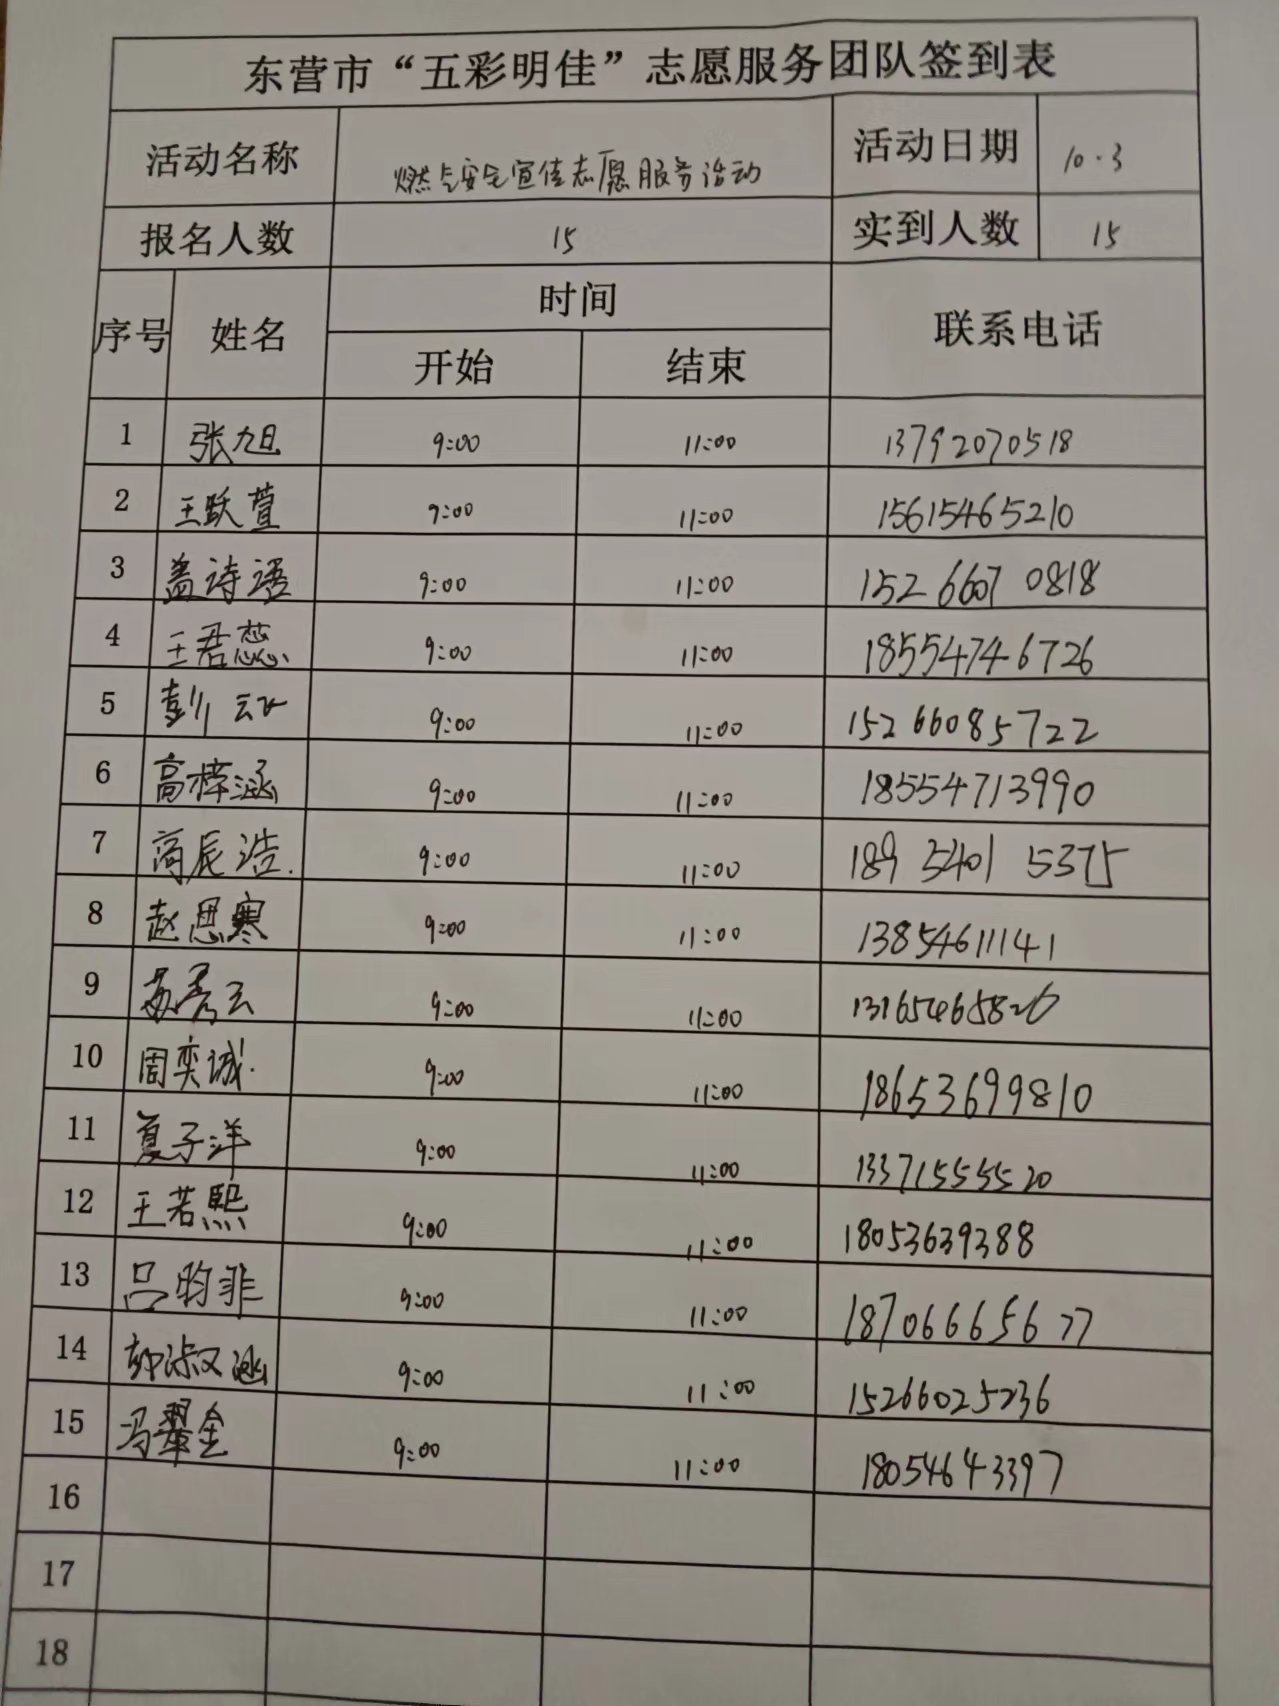 东营市“五彩明佳”志愿服务团队签到表
活动名称 燃气安全宣传志愿服务活动 活动日期 10.3
报名人数 15 实到人数 15
序号 姓名 时间 联系电话
开始 结束
1 张旭 9:00 11:00 13792070518
2 王跃萱 9:00 11:00 15615465210
3 盖诗语 9:00 11:00 152 6607 0818
4 王君蕊 9:00 11:00 18554746726
5 彭 9:00 11:00 15266085722
6 高梓涵 9:00 11:00 18554713990
7 商辰浩. 9:00 11:00 189 5401 5375
8 赵思寒 9:00 11:00 13854611141
9 苏秀云 9:00 11:00 13165465826
10 周奕诚. 9:00 11:00 18653699810
11 夏子洋 9:00 11:00 13371555520
12 王若熙 9:00 11:00 18053639388
13 吕昀菲 9:00 11:00 18706665677
14 郭淑涵 9:00 11:00 15266025236
15 冯翠金 9:00 11:00 18054643397
16
17
18